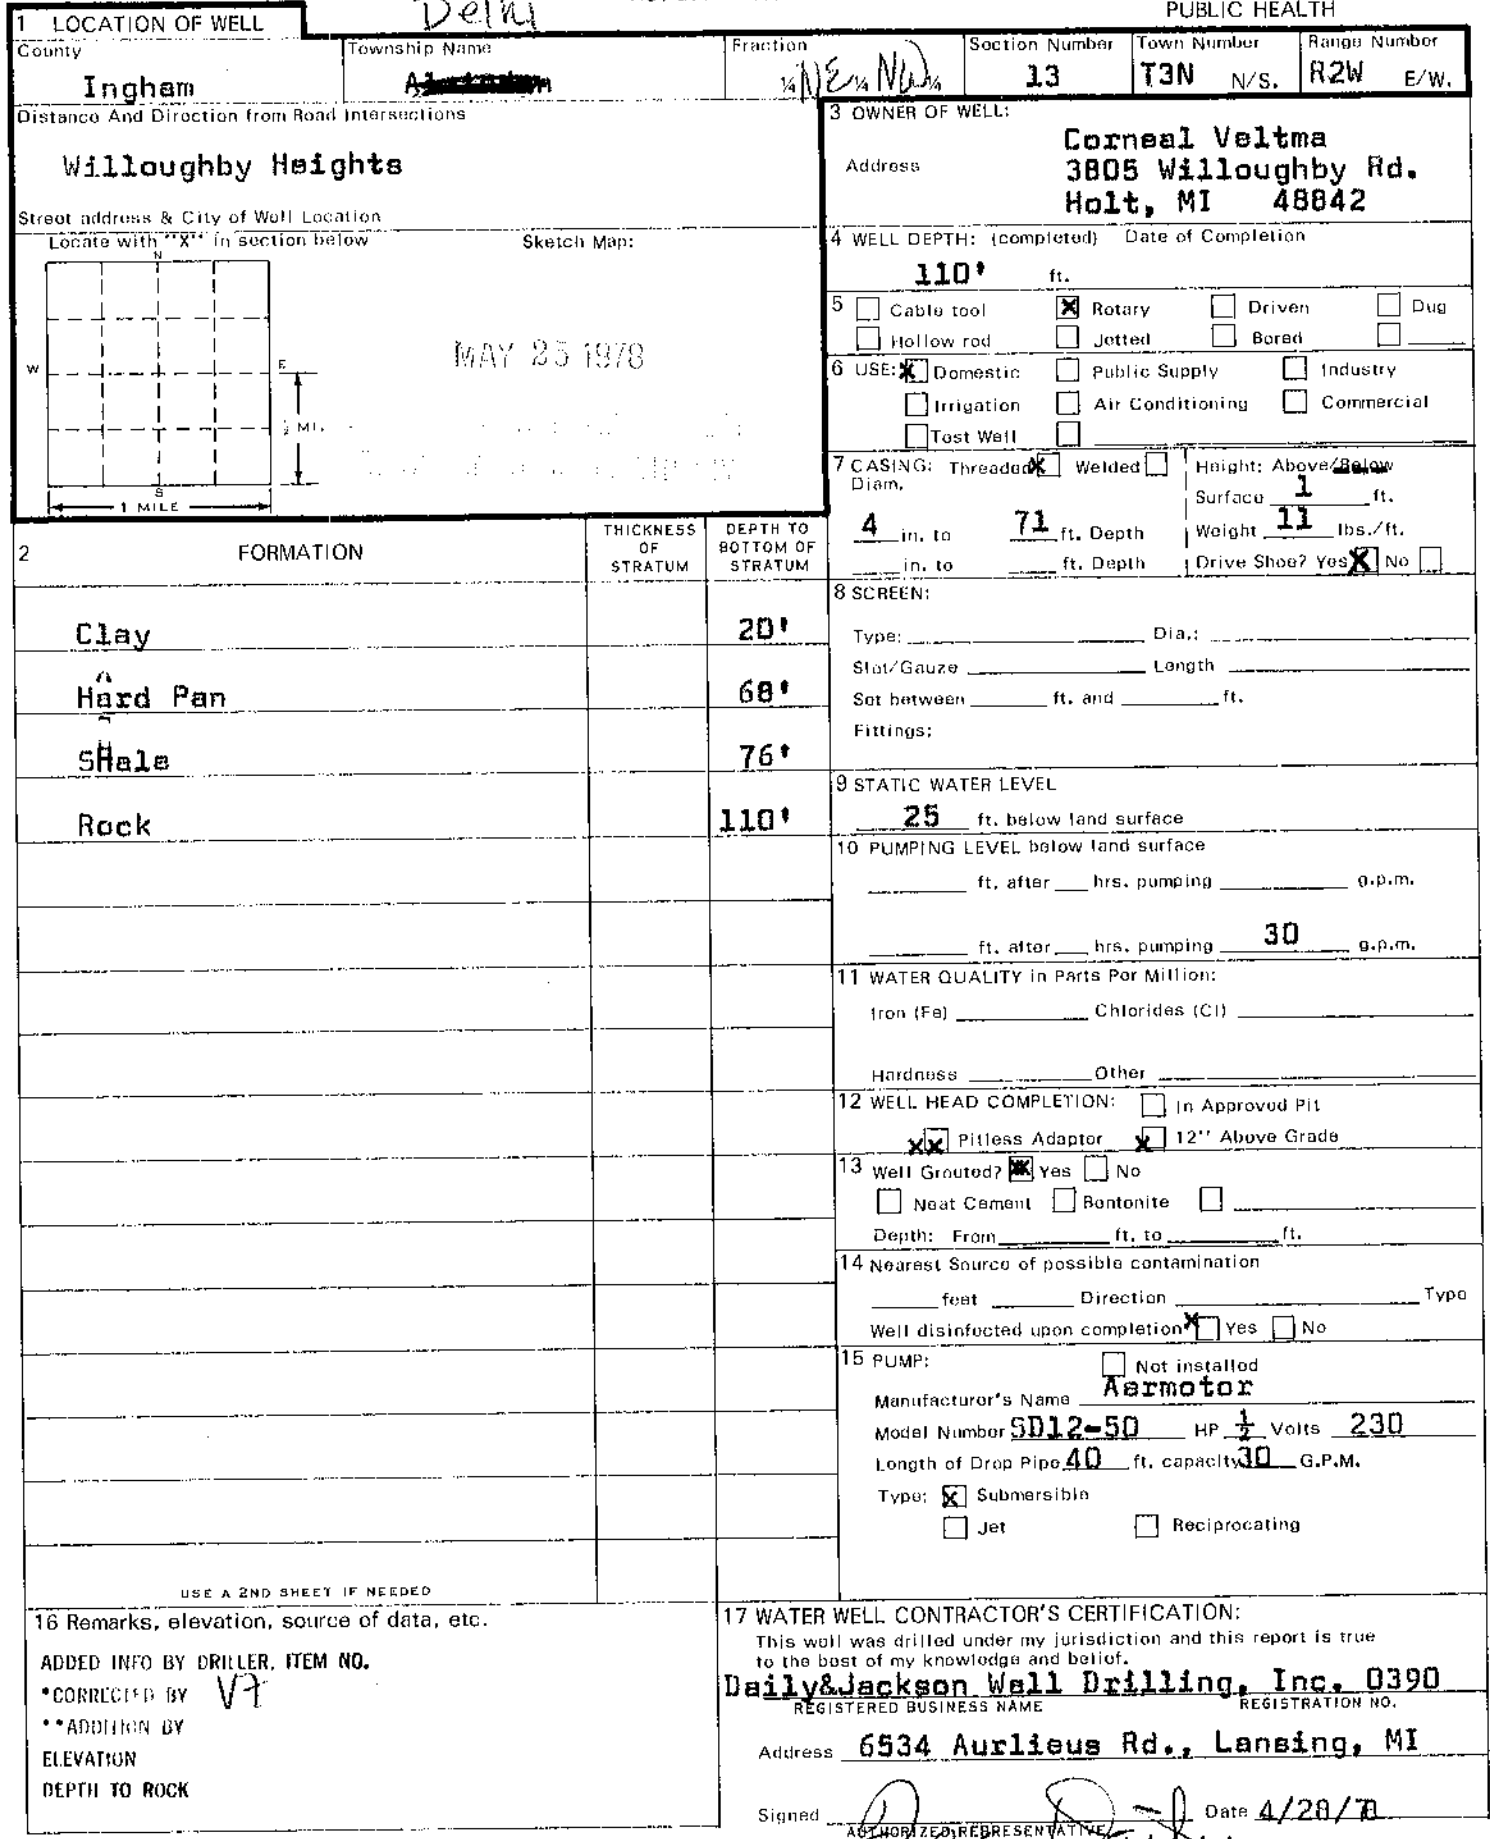 Delhi
PUBLIC HEALTH
1 LOCATION OF WELL
County Township Name Fraction Section Number Town Number Range Number
Ingham ¼ NE ¼ NW ¼ 13 T3N N/S. R2W E/W.
Distance And Direction from Road Intersections
Willoughby Heights
Street address & City of Well Location
Locate with "X" in section below Sketch Map:
N
W E
½ MI.
S
1 MILE
MAY 25 1978
3 OWNER OF WELL:
Corneal Veltma
Address 3805 Willoughby Rd.
Holt, MI 48842
4 WELL DEPTH: (completed) Date of Completion
110' ft.
5 Cable tool X Rotary Driven Dug
Hollow rod Jetted Bored
6 USE: X Domestic Public Supply Industry
Irrigation Air Conditioning Commercial
Test Well
7 CASING: Threaded X Welded Height: Above/Below
Diam.
Surface 1 ft.
4 in. to 71 ft. Depth Weight 11 lbs./ft.
in. to ft. Depth Drive Shoe? Yes X No
8 SCREEN:
Type: Dia.:
Slot/Gauze Length
Set between ft. and ft.
Fittings:
9 STATIC WATER LEVEL
25 ft. below land surface
10 PUMPING LEVEL below land surface
ft. after hrs. pumping g.p.m.
ft. after hrs. pumping 30 g.p.m.
11 WATER QUALITY in Parts Per Million:
Iron (Fe) Chlorides (Cl)
Hardness Other
12 WELL HEAD COMPLETION: In Approved Pit
XX Pitless Adaptor X 12" Above Grade
13 Well Grouted? X Yes No
Neat Cement Bentonite
Depth: From ft. to ft.
14 Nearest Source of possible contamination
feet Direction Type
Well disinfected upon completion X Yes No
15 PUMP: Not installed
Manufacturer's Name Aermotor
Model Number SD12-50 HP ½ Volts 230
Length of Drop Pipe 40 ft. capacity 30 G.P.M.
Type: X Submersible
Jet Reciprocating
2 FORMATION THICKNESS OF STRATUM DEPTH TO BOTTOM OF STRATUM
Clay 20'
Hard Pan 68'
SHale 76'
Rock 110'
USE A 2ND SHEET IF NEEDED
16 Remarks, elevation, source of data, etc.
ADDED INFO BY DRILLER, ITEM NO.
*CORRECTED BY
**ADDITION BY
ELEVATION
DEPTH TO ROCK
17 WATER WELL CONTRACTOR'S CERTIFICATION:
This well was drilled under my jurisdiction and this report is true
to the best of my knowledge and belief.
Daily&Jackson Well Drilling, Inc. 0390
REGISTERED BUSINESS NAME REGISTRATION NO.
Address 6534 Aurlieus Rd., Lansing, MI
Signed Date 4/28/78
AUTHORIZED REPRESENTATIVE